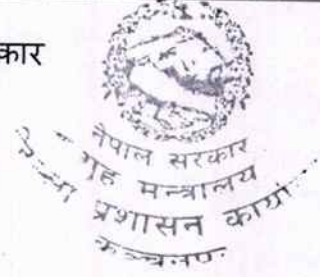 कार
नेपाल सरकार
गृह मन्त्रालय
प्रशासन